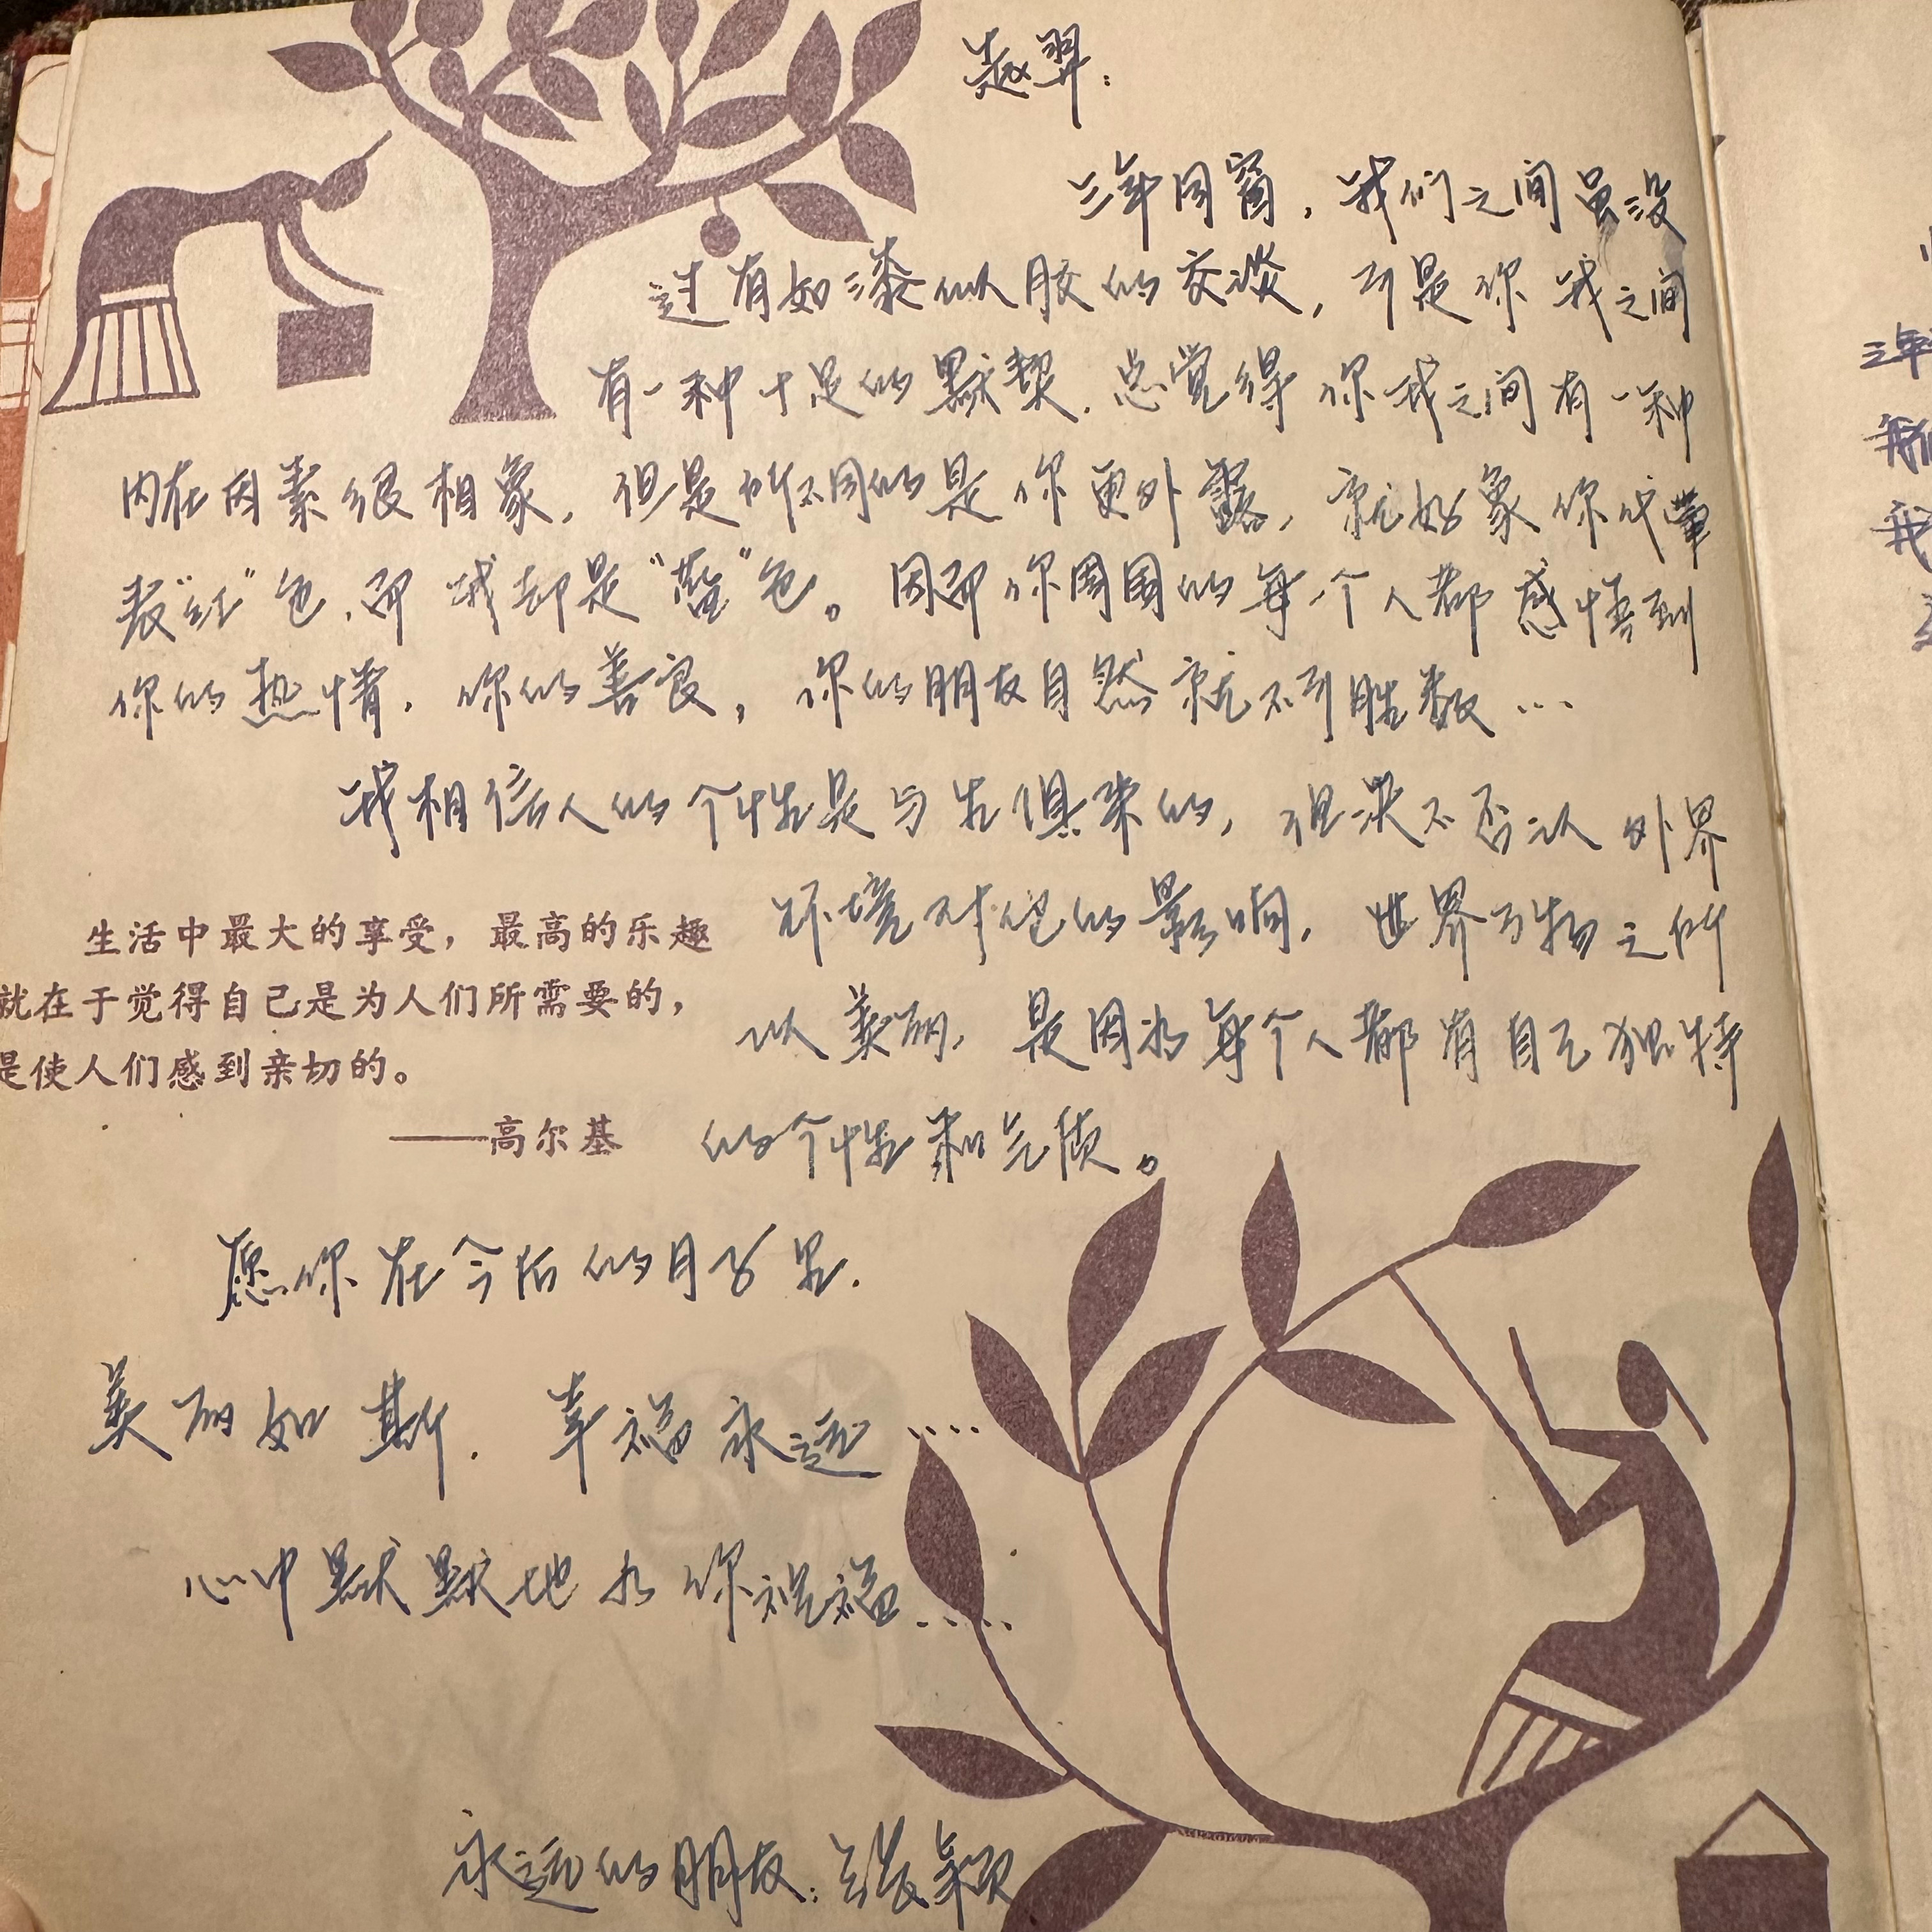 赵羿:
三年同窗，我们之间虽没
过有如漆似胶的交谈，可是你我之间
有一种十足的默契．总觉得你我之间有一种
内在因素很相象，但是所不同的是你更外露，就好象你代
表“红”色，而我却是“蓝”色。因而你周围的每一个人都感悟到
你的热情．你的善良，你的朋友自然就不可胜数…
我相信人的个性是与生俱来的，但决不否认外界
环境对他的影响．世界万物之所
以美丽，是因为每个人都有自己独特
的个性和气质。
生活中最大的享受，最高的乐趣
就在于觉得自己是为人们所需要的，
是使人们感到亲切的。
——高尔基
愿你在今后的日子里．
美丽如斯．幸福永远....
心中默默地为你祝福.....
永远的朋友:张颖
三年
我们
我